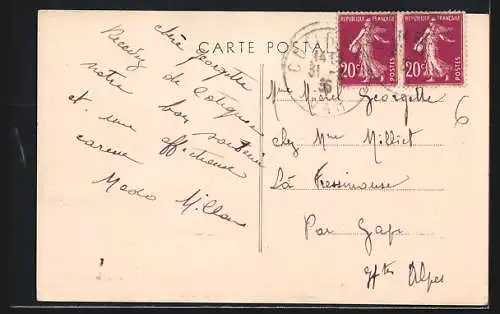 CARTE POSTALE
REPUBLIQUE FRANÇAISE
20c POSTES
REPUBLIQUE FRANÇAISE
20c POSTES
chère georgette
Recevez de Cotignac
notre bon souvenir
et une affectueuse
caresse
Mado Millan
Georgette
chez Mme Milliet
La Fressinouse
Par Gap
Htes Alpes
6